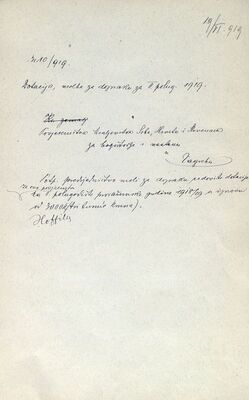 19/VI. 919
10/919.
Dotacija, molba za doznaku za II polug. 1919.
Povjereništvu kraljevstva Srba, Hrvata i Slovenaca
za bogoštovje i nastavu
Zagreb
Potp. predsjedništvo moli za doznaku redovite dotacije
za ovo
za polugodište proračunske godine 1918/19 u iznosu
od 3000
Hoffiller